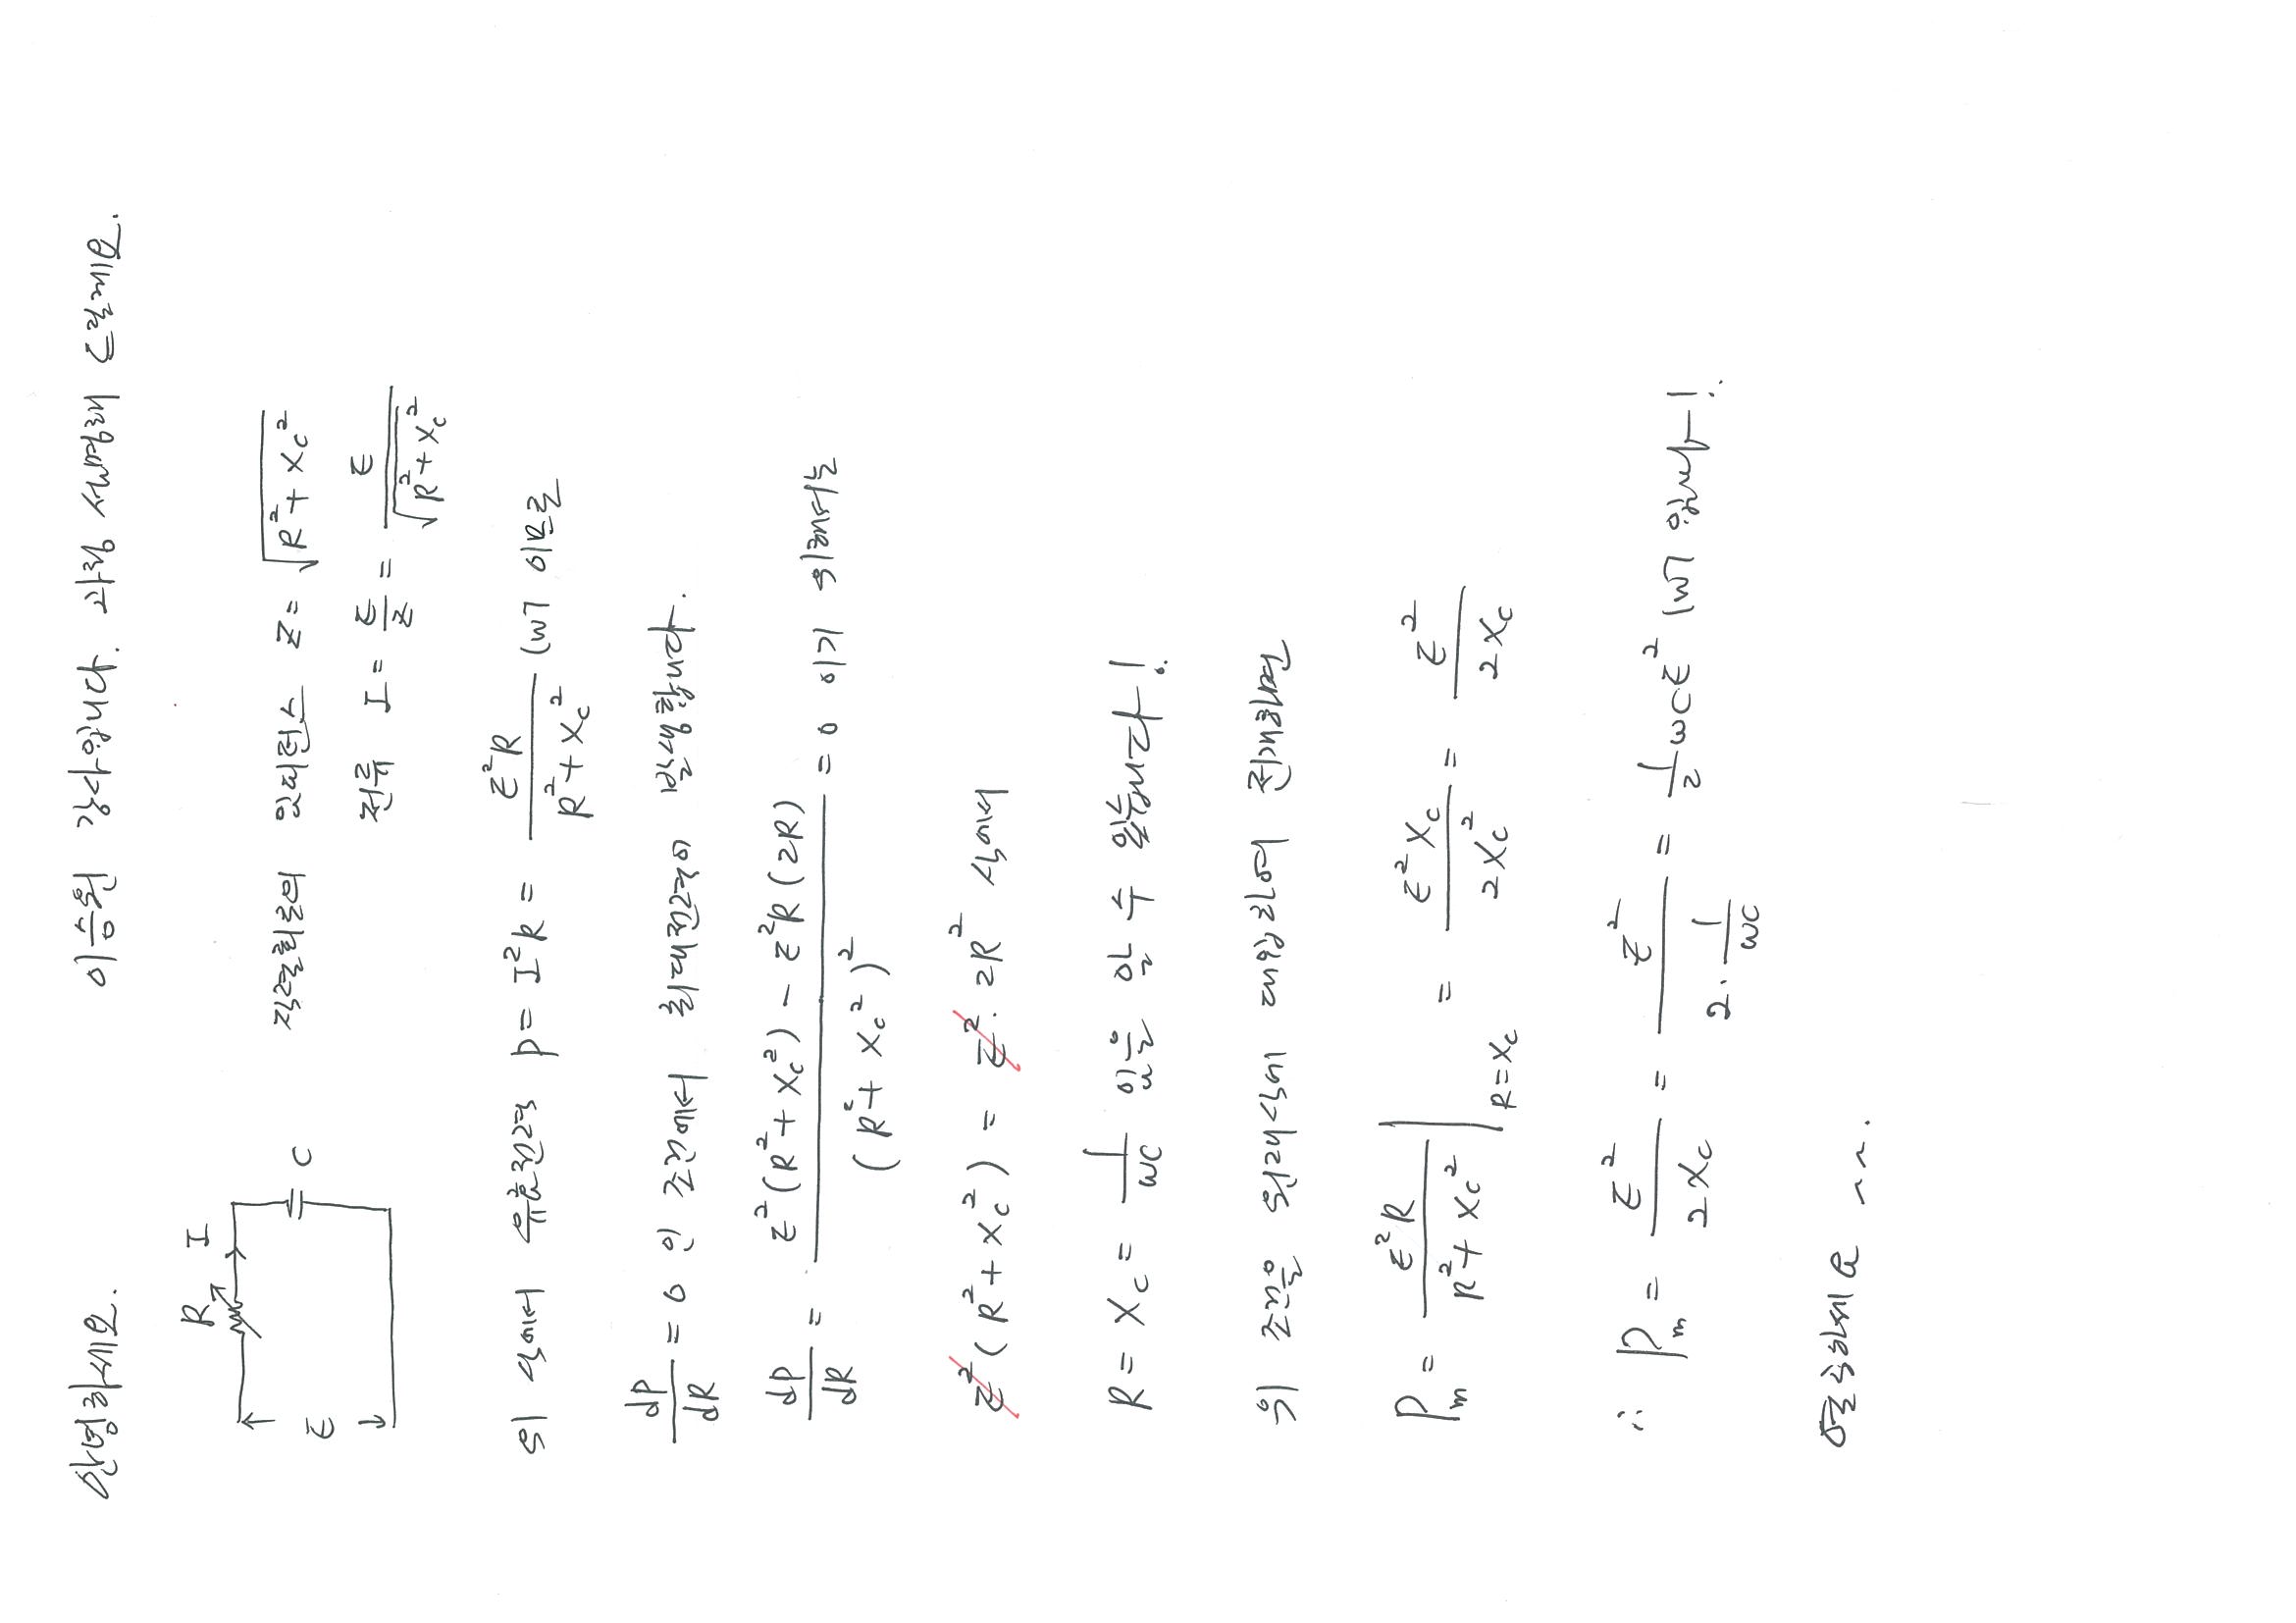 안녕하세요. 이승원 강사입니다. 과정 설명해 드릴게요.
R I
C
E
직렬회로의 임피던스 Z = √(R² + Xc²)
전류 I = E/Z = E/√(R² + Xc²)
위 식에서 유효전력 P = I²R = E²R/(R² + Xc²) [W] 이므로
dP/dR = 0 인 조건에서 최대전력이 발생합니다.
dP/dR = (E²(R² + Xc²) - E²R(2R))/(R² + Xc²)² = 0 이기 위해서는
E²(R² + Xc²) = E²·2R² 식에서
R = Xc = 1/ωC 임을 알 수 있습니다!
위 조건을 원래식에 대입하여 전개하면
Pm = E²R/(R² + Xc²) |R=Xc = E²Xc/2Xc² = E²/2Xc
∴ Pm = E²/2Xc = E²/(2·1/ωC) = 1/2 ωCE² [W] 입니다!
열공하세요 ~~.